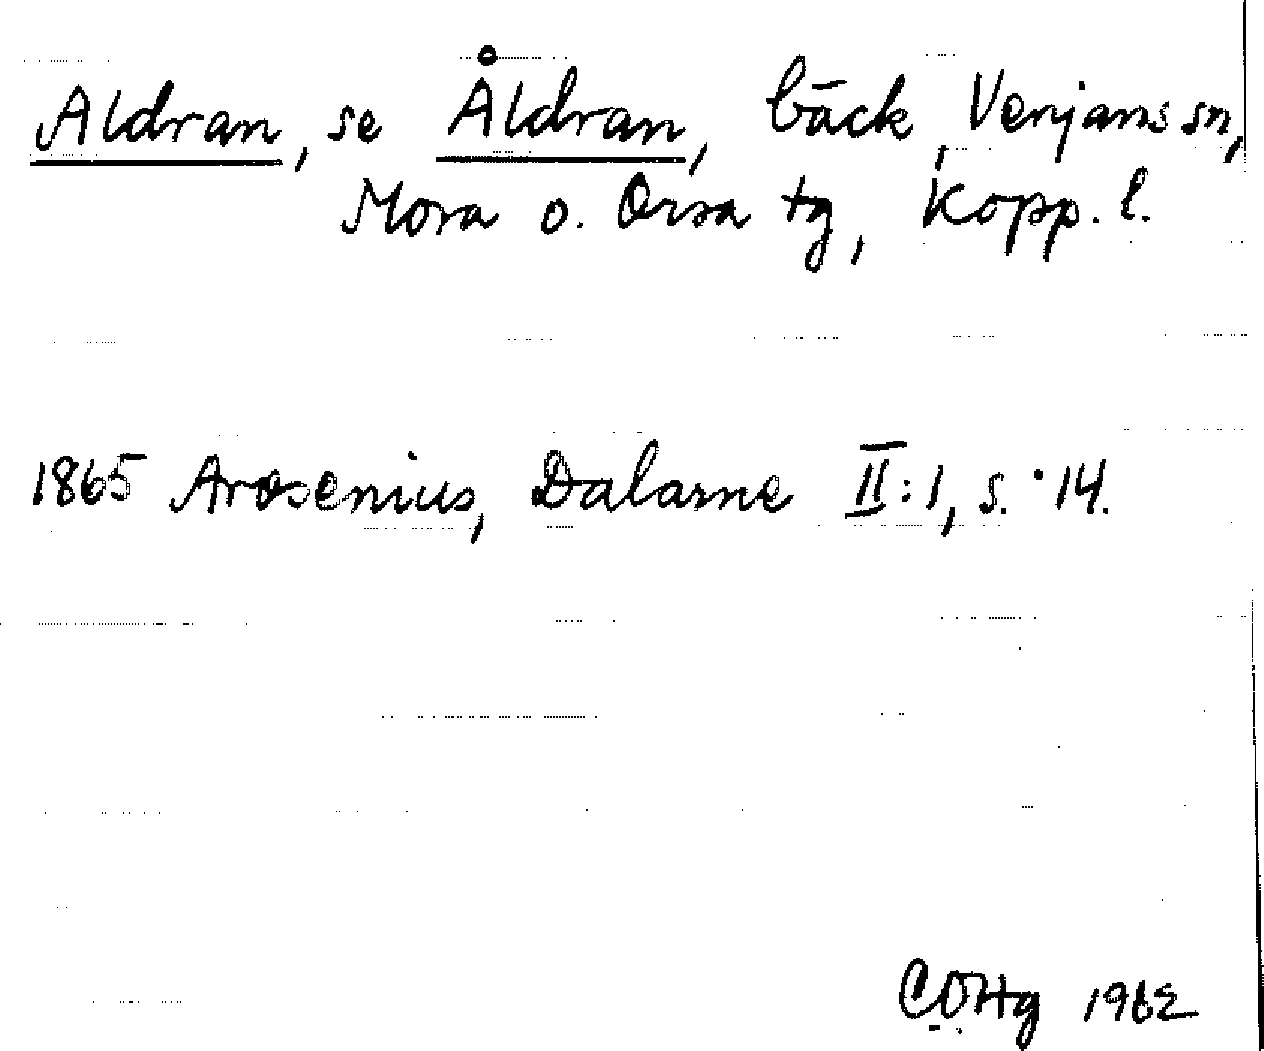 Aldran, se Åldran, bäck, Venjans sn,
Mora o. Orsa tg, Kopp. l.
1865 Arosenius, Dalarne II:1, s. 14.
COHg 1962